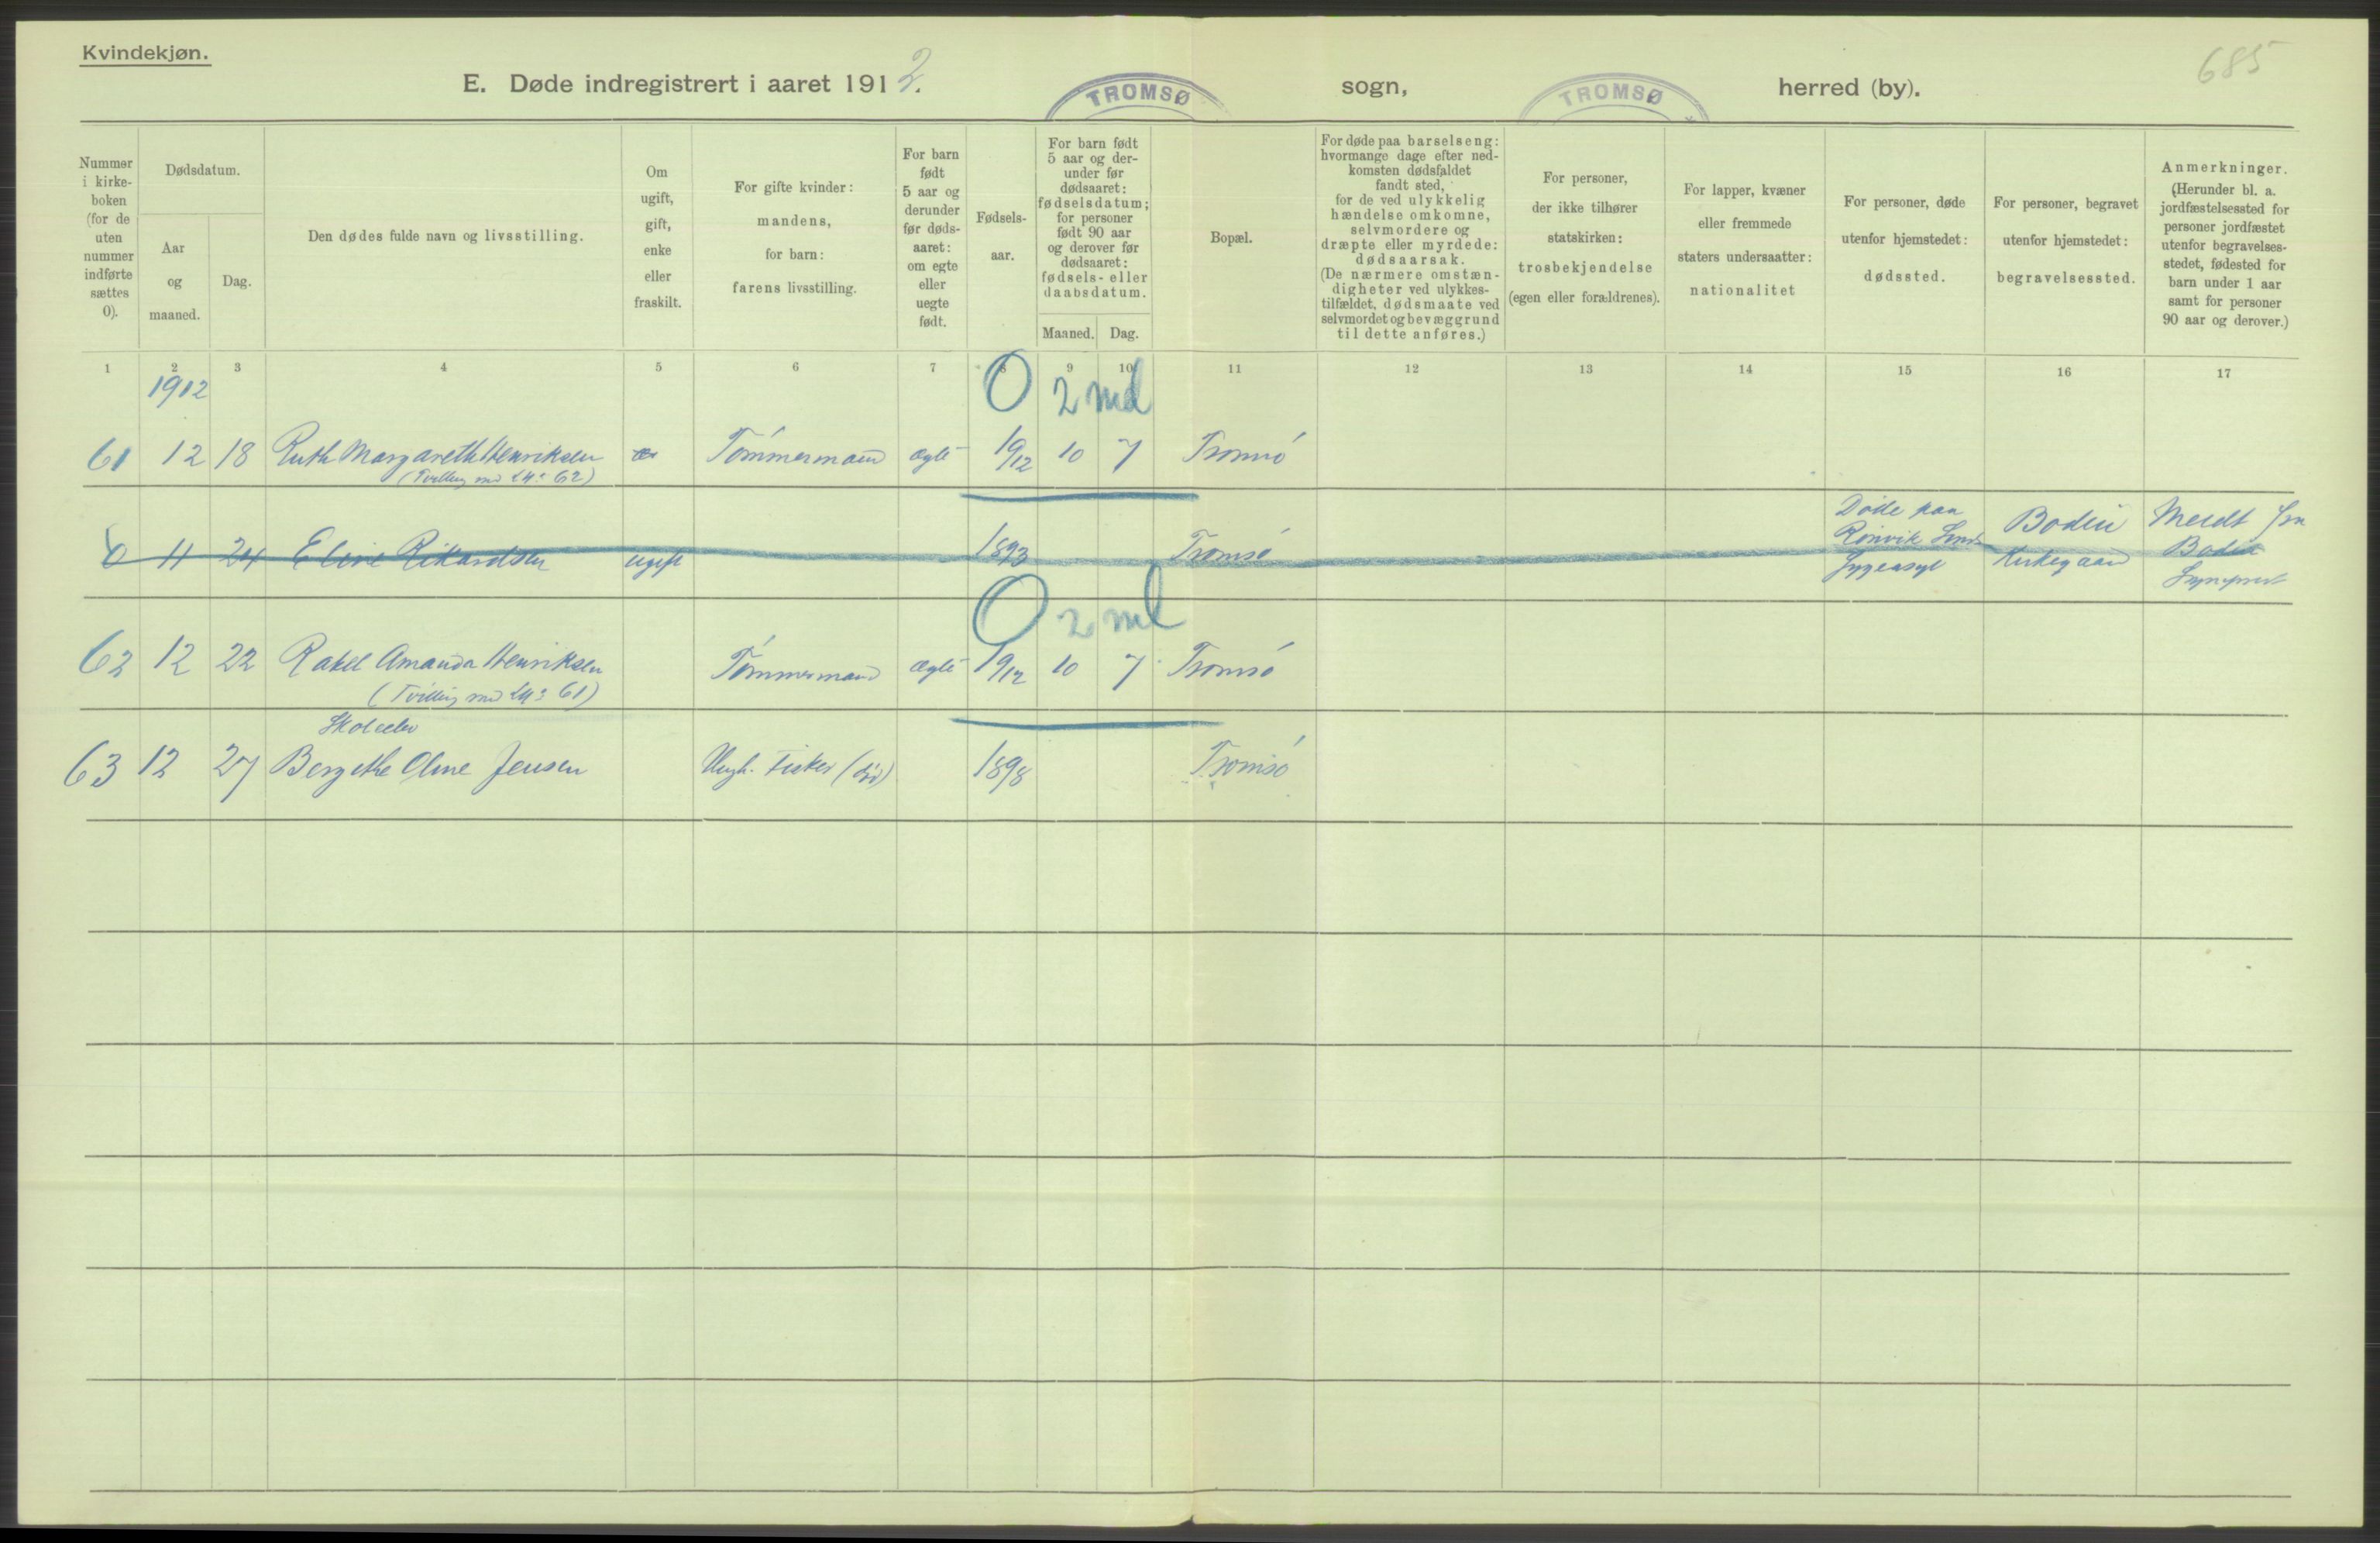 Kvindekjøn.
685
E. Døde indregistrert i aaret 1912. TROMSØ sogn, TROMSØ herred (by).
Nummer
i kirke-
boken
(for de
uten
nummer
indførte
sættes
0).
Dødsdatum.
Aar
og
maaned.
Dag.
Den dødes fulde navn og livsstilling.
Om
ugift,
gift,
enke
eller
fraskilt.
For gifte kvinder:
mandens,
for barn:
farens livsstilling.
For barn
født
5 aar og
derunder
før døds-
aaret:
om egte
eller
uegte
født.
Fødsels-
aar.
For barn født
5 aar og der-
under før
dødsaaret:
fødselsdatum;
for personer
født 90 aar
og derover før
dødsaaret:
fødsels- eller
daabsdatum.
Maaned. Dag.
Bopæl.
For døde paa barselseng:
hvormange dage efter ned-
komsten dødsfaldet
fandt sted,
for de ved ulykkelig
hændelse omkomne,
selvmordere og
dræpte eller myrdede:
dødsaarsak.
(De nærmere omstæn-
digheter ved ulykkes-
tilfældet, dødsmaate ved
selvmordet og bevæggrund
til dette anføres.)
For personer,
der ikke tilhører
statskirken:
trosbekjendelse
(egen eller forældrenes).
For lapper, kvæner
eller fremmede
staters undersaatter:
nationalitet
For personer, døde
utenfor hjemstedet:
dødssted.
For personer, begravet
utenfor hjemstedet:
begravelsessted.
Anmerkninger.
(Herunder bl. a.
jordfæstelsessted for
personer jordfæstet
utenfor begravelses-
stedet, fødested for
barn under 1 aar
samt for personer
90 aar og derover.)
1 2 3 4 5 6 7 8 9 10 11 12 13 14 15 16 17
1912 0 2 md
61 12 18 Ruth Margareth Henriksen Tømmermand ægte 1912 10 7 Tromsø
(Tvilling med No 62)
0 11 24 Eline Rikardsen ugift 1893 Tromsø
Døde paa
Rønvik Sinds
sygeasyl
Bodin
Kirkegaard
Meldt fra
Bodin
Sogneprest
0 2 md
62 12 22 Rakel Amanda Henriksen Tømmermand ægte 1912 10 7 Tromsø
(Tvilling med No 61)
Skoleelev
63 12 27 Bergithe Oline Jensen Ungk. Fisker (død) 1898 Tromsø